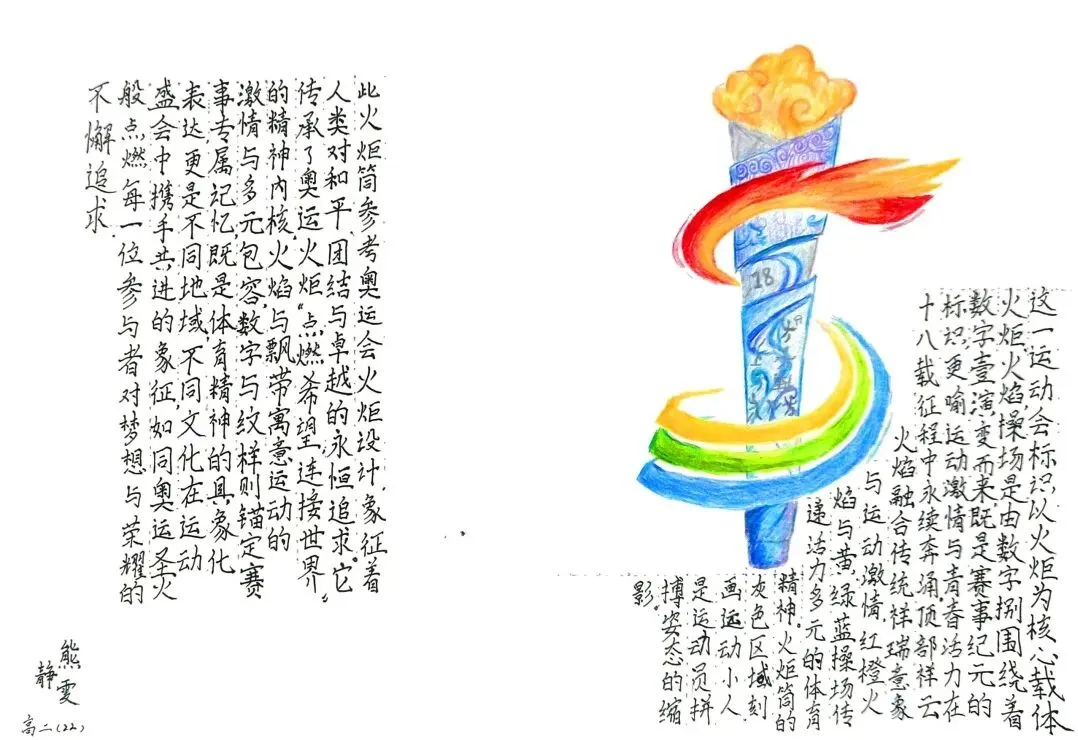 这一运动会标识,以火炬为核心载体
火炬火焰,操场是由数字捌围绕着
数字壹演变而来,既是赛事纪元的
标识,更喻运动激情与青春活力在
十八载征程中永续奔涌。顶部祥云
火焰融合传统祥瑞意象
与运动激情,红橙火
焰与黄,绿蓝操场传
递活力多元的体育
精神。火炬筒的
灰色区域刻
画运动小人
是运动员拼
搏姿态的缩
影。
18
此火炬筒参考奥运会火炬设计,象征着
人类对和平,团结与卓越的永恒追求。它
传承了奥运火炬“点燃希望,连接世界”
的精神内核,火焰与飘带寓意运动的
激情与多元包容,数字与纹样则锚定赛
事专属记忆,既是体育精神的具象化
表达,更是不同地域,不同文化在运动
盛会中携手共进的象征,如同奥运圣火
般点燃每一位参与者对梦想与荣耀的
不懈追求.
熊雯
静
高二(22)